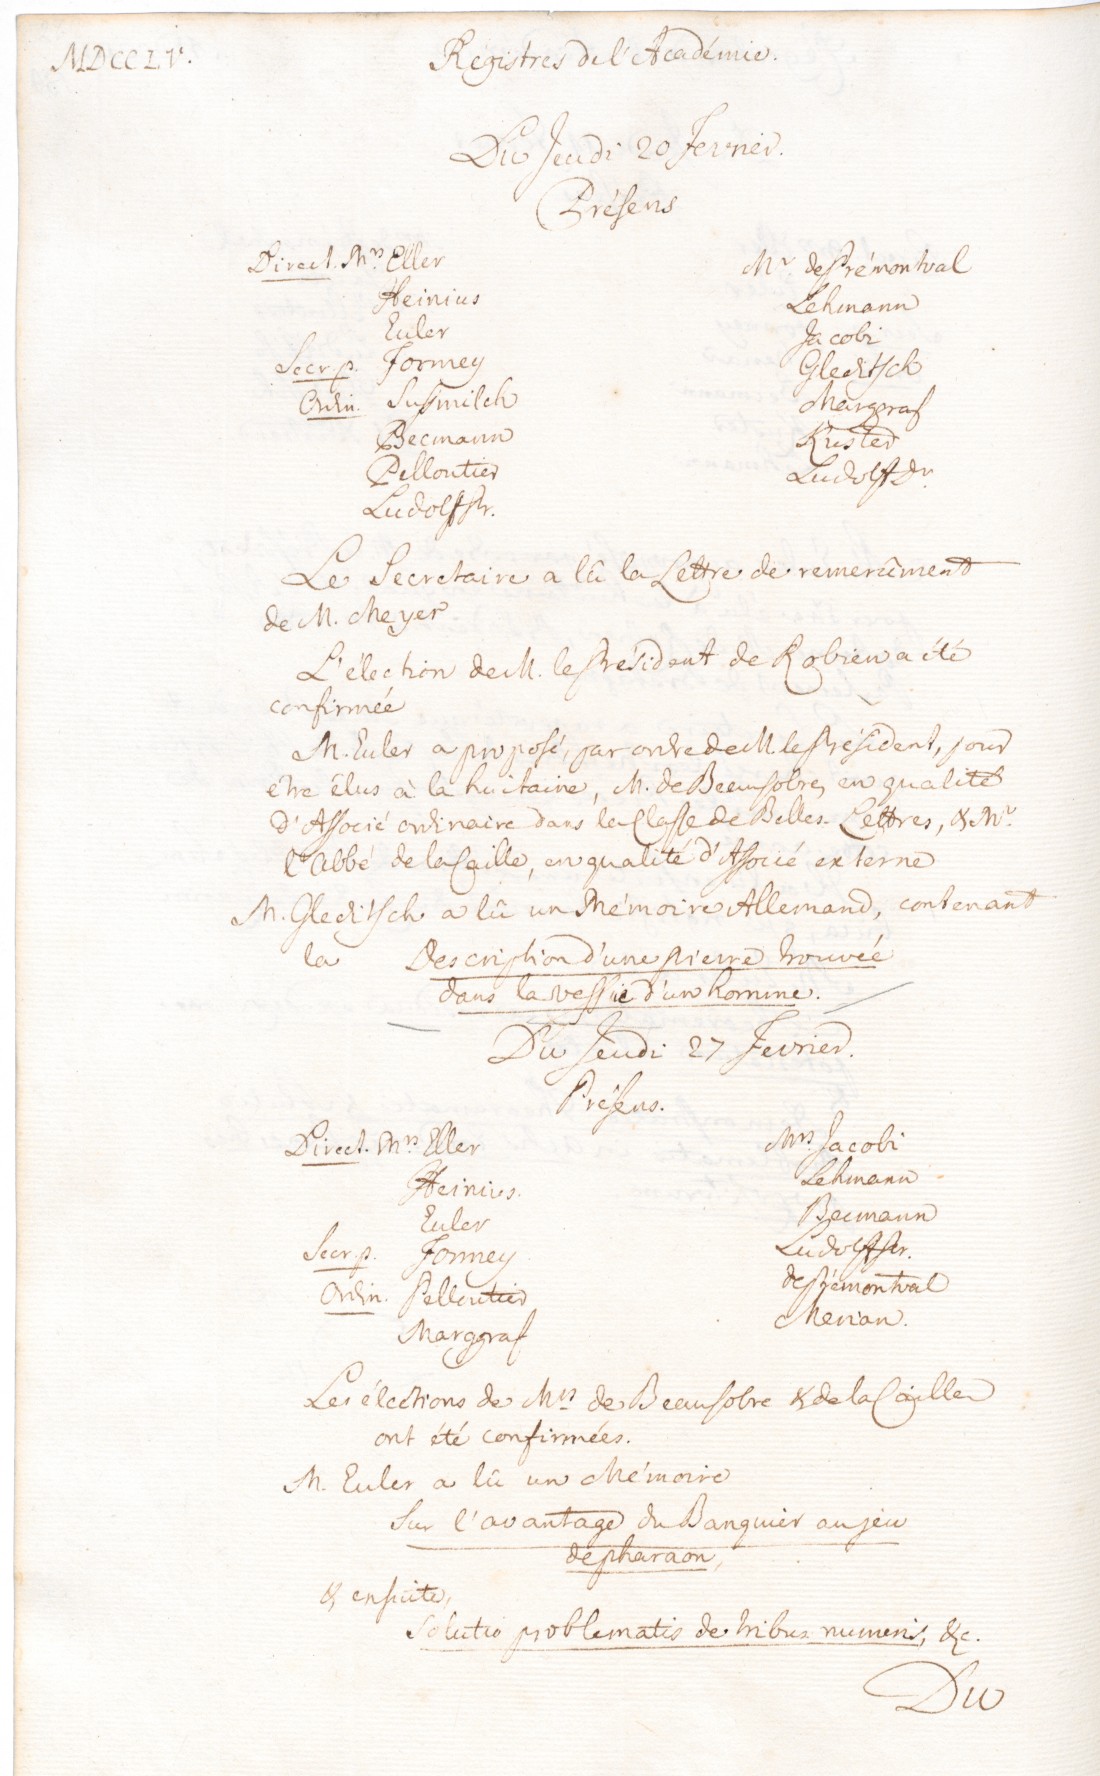 MDCCLV.
Registres de l'Académie.
Du Jeudi 20 Fevrier.
Présens
Direct. Mrs. Eller
Heinius
Euler
Secr. p. Formey
Ordin. Susmilch
Becmann
Pelloutier
Ludolff Sr.
Mr. de Prémontval
Lehmann
Jacobi
Gleditsch
Marggraf
Kuster
Ludolff Dr.
Le Secretaire a lû la Lettre de remercîment
de M. Meyer
L'élection de M. le Président de Robien a été
confirmée
M. Euler a proposé, par ordre de M. le Président, pour
être êlus à la huitaine, M. de Beausobre, en qualité
d'Associé ordinaire dans la Classe de Belles-Lettres, & Mr.
l'Abbé de la Caille, en qualité d'Associé externe
M. Gleditsch a lû un Mémoire Allemand, contenant
la Description d'une pierre trouvée
dans la vessie d'un homme.
Du Jeudi 27 Fevrier.
Présens.
Direct. Mrs. Eller
Heinius.
Euler
Secr. p. Formey
Ordin. Pelloutier
Marggraf
Mrs. Jacobi
Lehmann
Becmann
Ludolff Sr.
de Prémontval
Merian.
Les élections de Mrs. de Beausobre & de la Caille
ont été confirmées.
M. Euler a lû un Mémoire
Sur l'avantage du Banquier au jeu
de pharaon,
& ensuite,
Solutio problematis de tribus numeris, &c.
Du